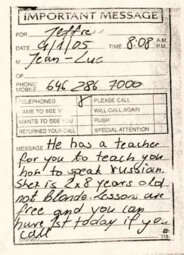 IMPORTANT MESSAGE
FOR Jeffrey
DATE 6/1/05 TIME 8:08 A.M. P.M.
M Jean-Luc
OF
PHONE/
MOBILE 646 286 7000
TELEPHONED PLEASE CALL
CAME TO SEE YOU WILL CALL AGAIN
WANTS TO SEE YOU RUSH
RETURNED YOUR CALL SPECIAL ATTENTION
MESSAGE He has a teacher
for you to teach you
how to speak Russian.
She is 2x8 years old
not blonde. Lessons are
free and you can
have 1st today if you
call